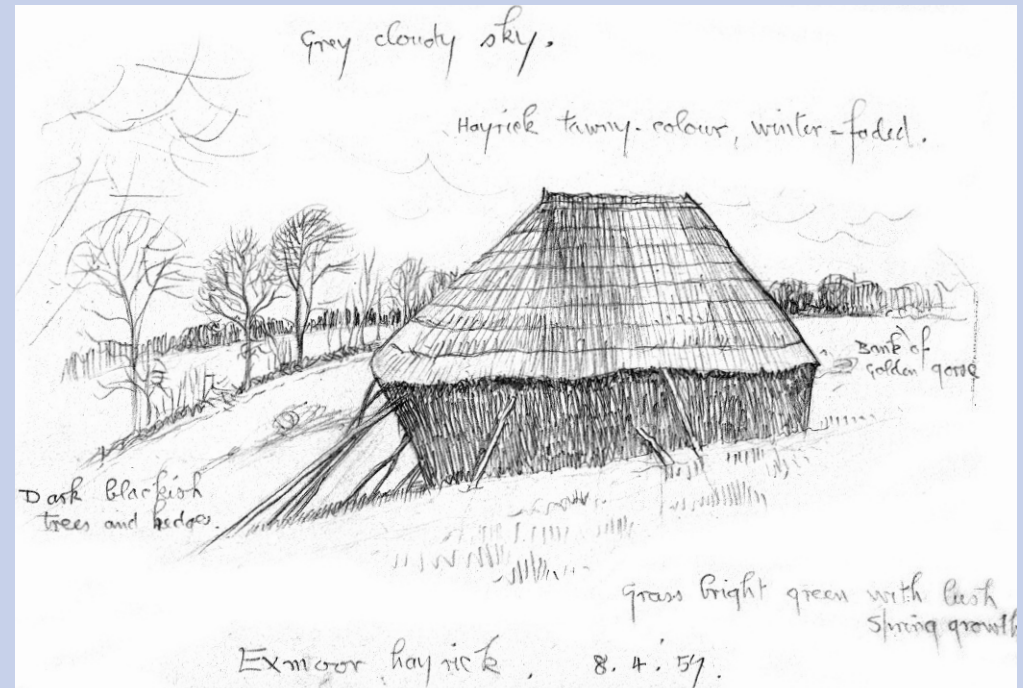 Grey cloudy sky.
Hayrick tawny-colour, winter-faded.
Bank of
golden gorse
Dark blackish
trees and hedges.
Grass bright green with lush
Spring growth
Exmoor hayrick. 8.4.57.